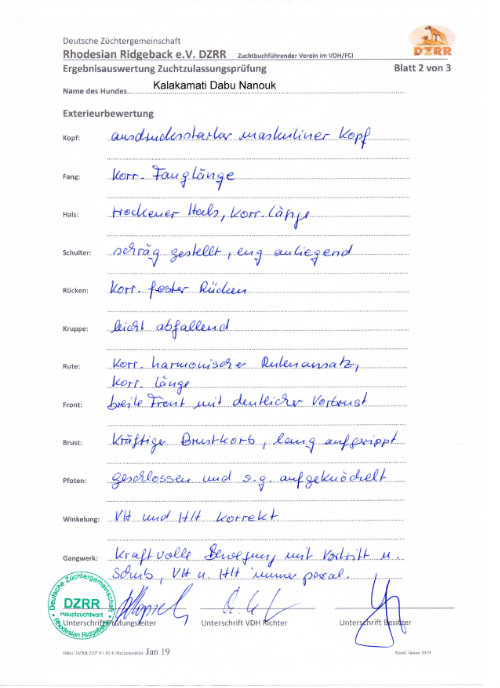 Deutsche Züchtergemeinschaft
Rhodesian Ridgeback e.V. DZRR Zuchtbuchführender Verein im VDH/FCI
DZRR
Ergebnisauswertung Zuchtzulassungsprüfung Blatt 2 von 3
Name des Hundes Kalakamati Dabu Nanouk
Exterieurbewertung
Kopf: ausdrucksstarker maskuliner Kopf
Fang: Korr. Fanglänge
Hals: trockener Hals, Korr. Länge
Schulter: schräg gestellt, eng anliegend
Rücken: Korr. fester Rücken
Kruppe: leicht abfallend
Rute: Korr. harmonischer Rutenansatz,
Korr. Länge
Front: breite Front mit deutlicher Vorbrust
Brust: Kräftiger Brustkorb, lang aufgerippt
Pfoten: geschlossen und s.g. aufgeknöchelt
Winkelung: VH und HH korrekt
Gangwerk: Kraftvolle Bewegung mit Vortritt u.
Schub, VH u. HH immer
Deutsche Züchtergemeinschaft
DZRR
Hauptzuchtwart
Rhodesian Ridgeback
Unterschrift Prüfungsleiter Unterschrift VDH Richter Unterschrift Besitzer
Jan 19
Stand: Januar 2019